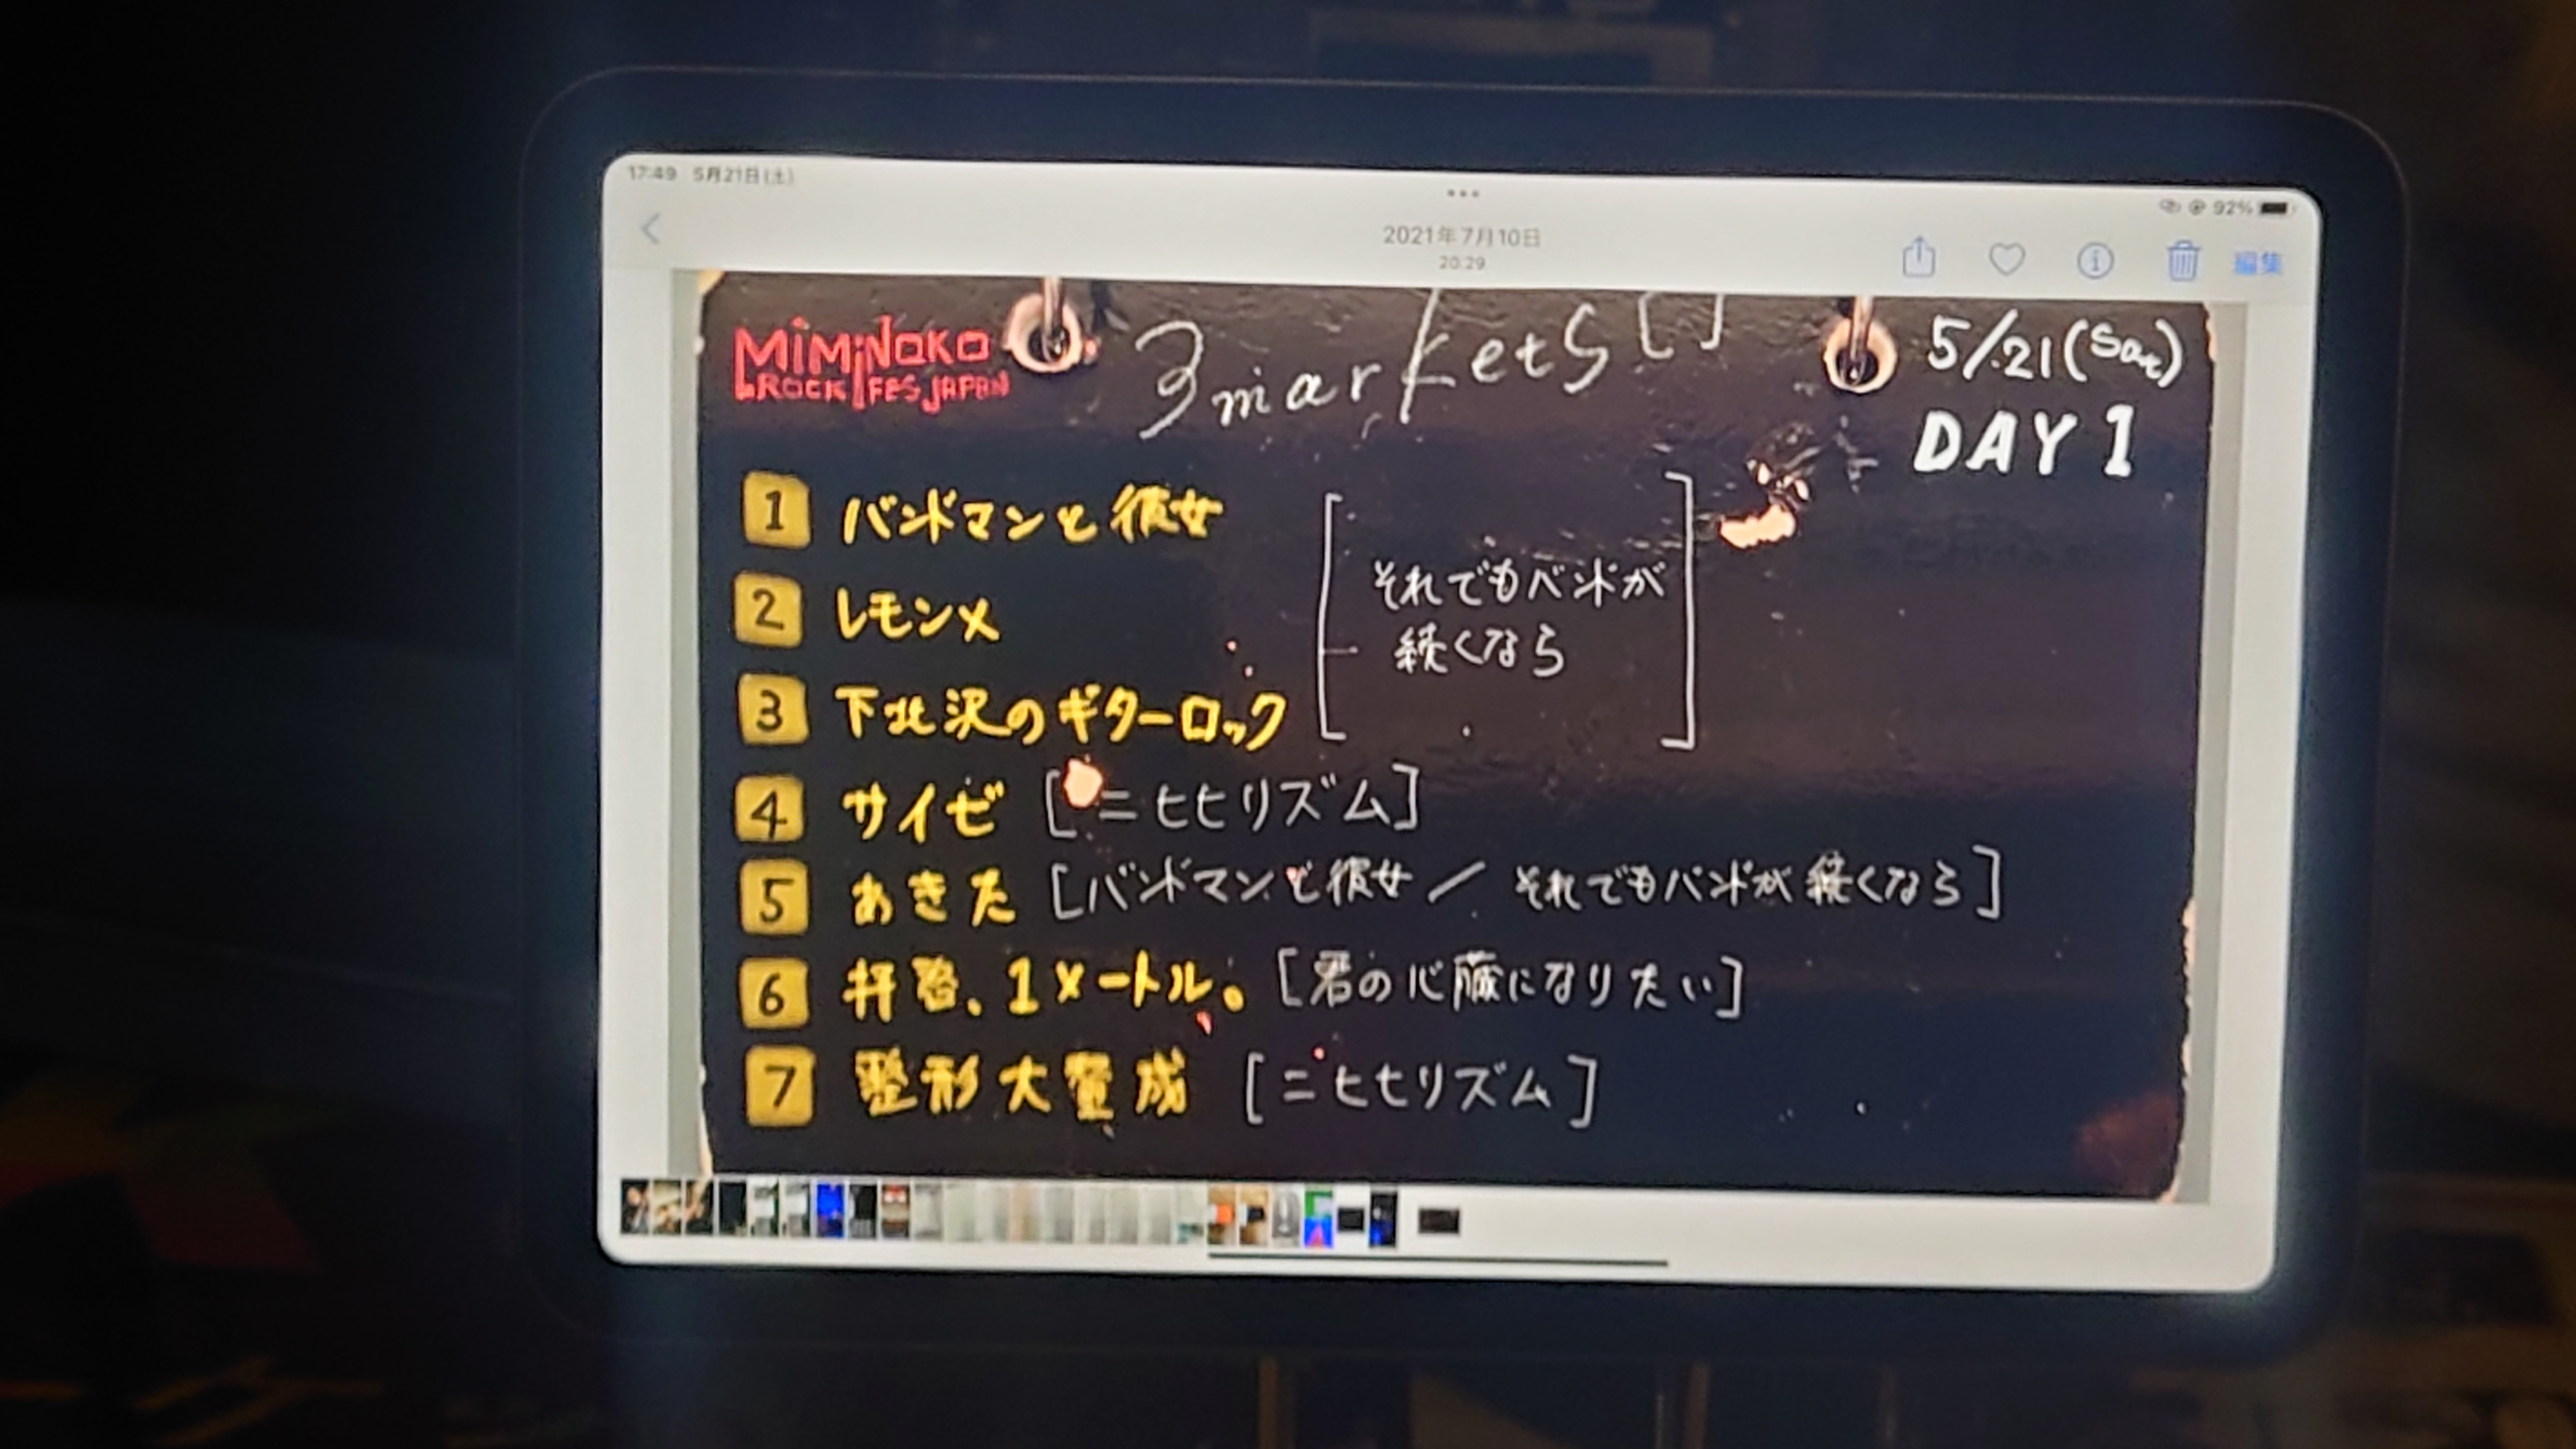 17:49 5月21日(土)
92%
2021年7月10日
20:29
編集
MiMiNOKO
ROCK FES JAPAN
3markets[]
5/21(Sat)
DAY 1
1 バンドマンと彼女
2 レモン×
3 下北沢のギターロック
[それでもバンドが
続くなら]
4 サイゼ [ニヒヒリズム]
5 あきた [バンドマンと彼女/それでもバンドが続くなら]
6 拝啓、1メートル。[君の心臓になりたい]
7 整形大賛成 [ニヒヒリズム]